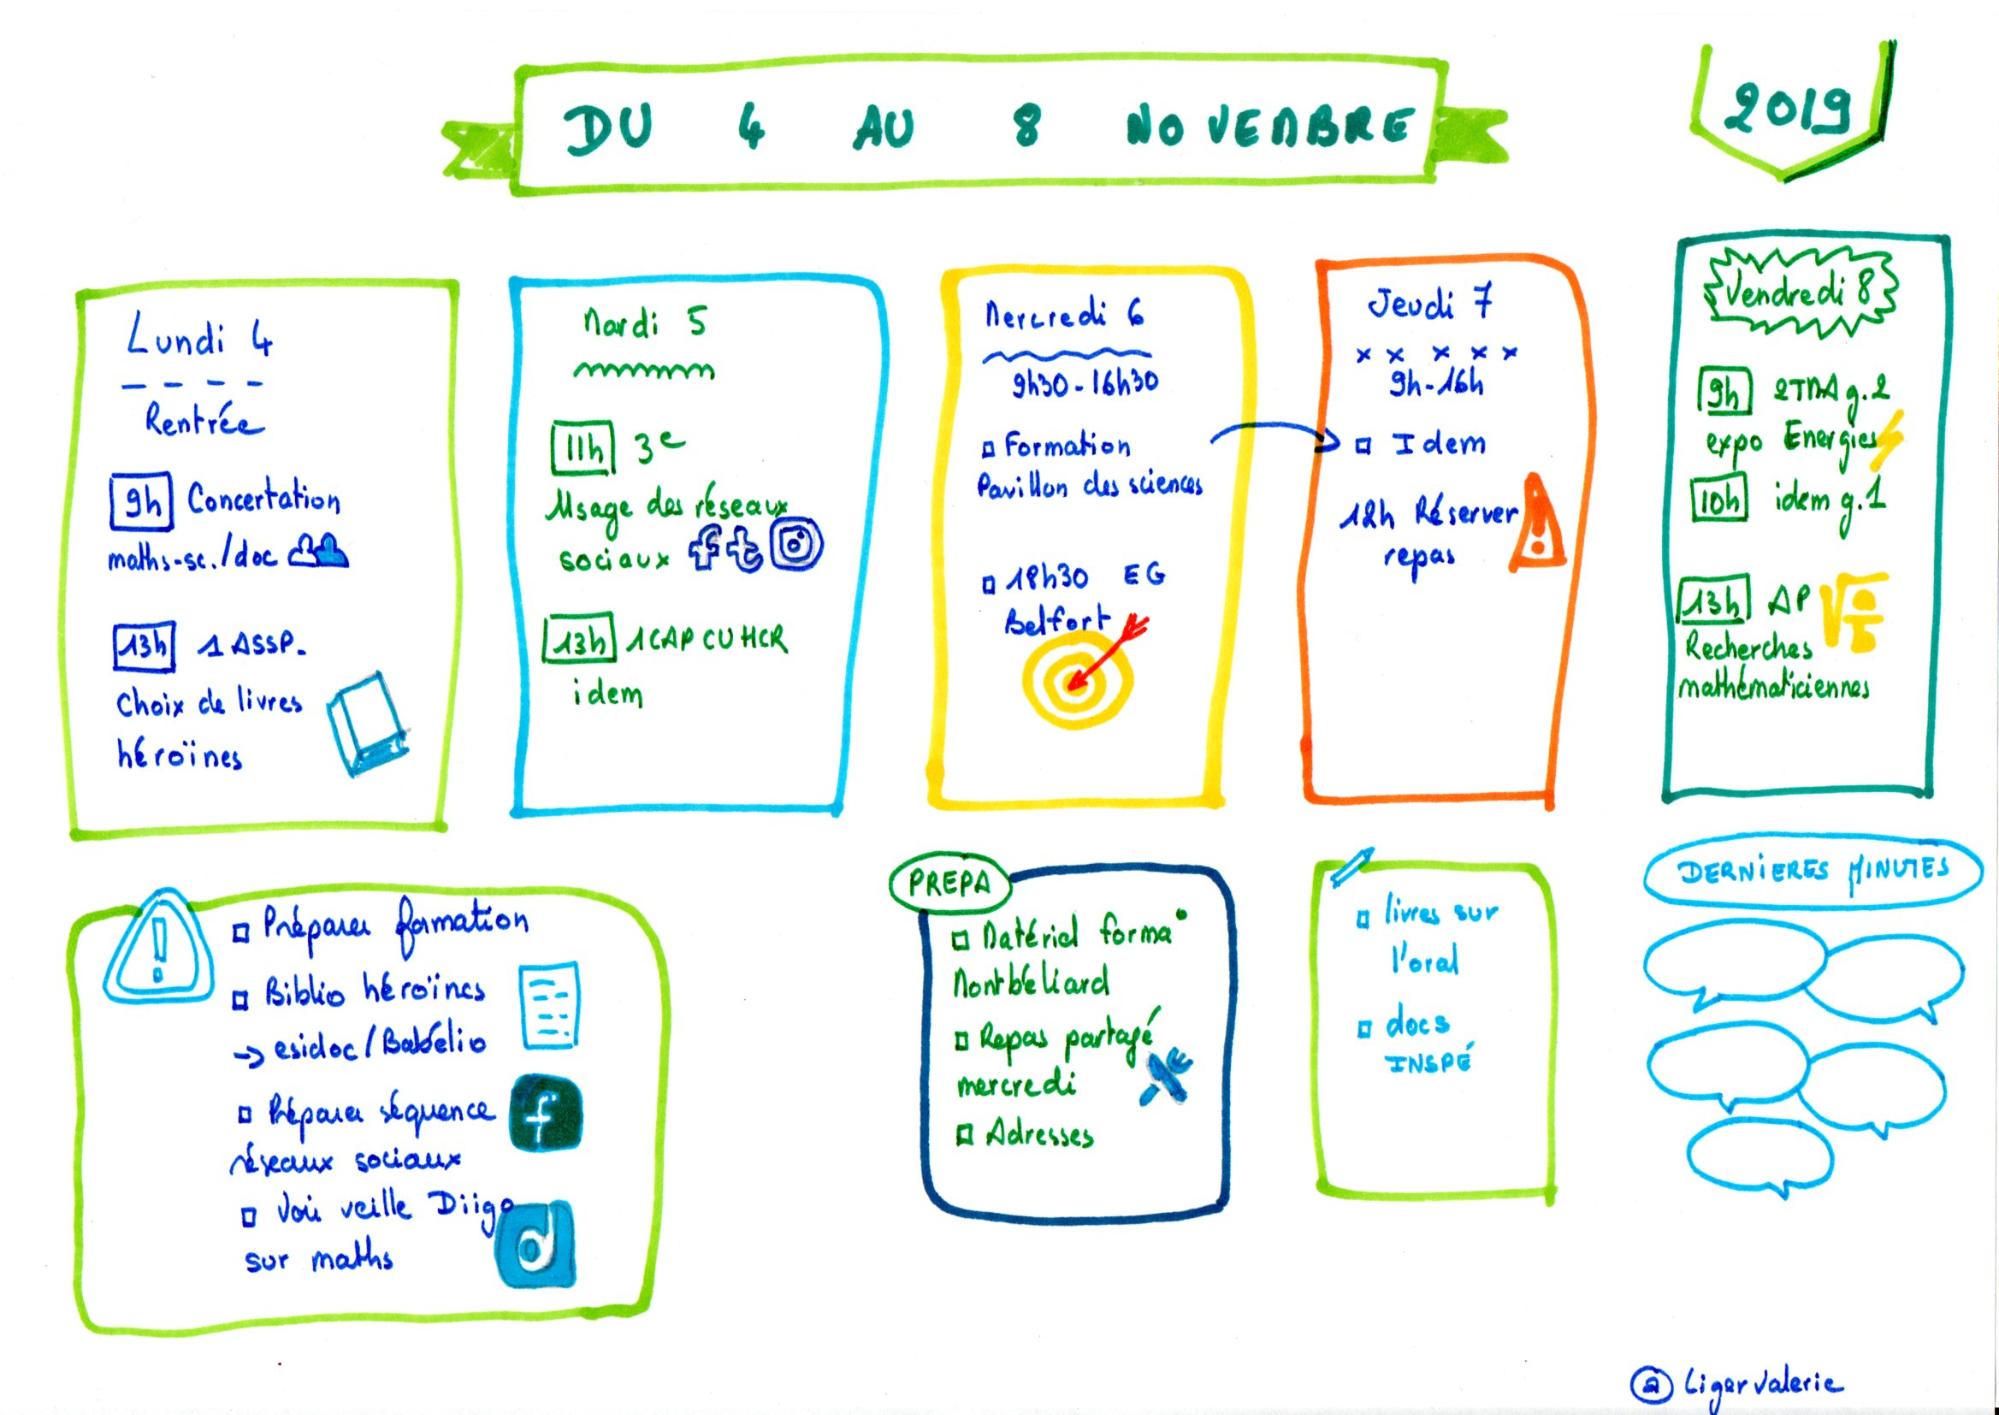 DU 4 AU 8 NOVEMBRE
2019
Lundi 4
Rentrée
9h Concertation
maths-sc./doc
13h 1 ASSP.
Choix de livres
héroïnes
Mardi 5
11h 3e
Usage des réseaux
sociaux
13h 1CAP CUHCR
idem
Mercredi 6
9h30-16h30
Formation
Pavillon des sciences
18h30 EG
Belfort
Jeudi 7
9h-16h
Idem
12h Réserver
repas
Vendredi 8
9h 2TMA g.2
expo Energies
10h idem g.1
13h AP
√a/b
Recherches
mathématiciennes
Préparer formation
Biblio héroïnes
→ esidoc/Babélio
Préparer séquence
réseaux sociaux
Voir veille Diigo
sur maths
PREPA
Matériel forma°
Montbéliard
Repas partagé
mercredi
Adresses
livres sur
l'oral
docs
INSPÉ
DERNIERES MINUTES
@ LigerValerie